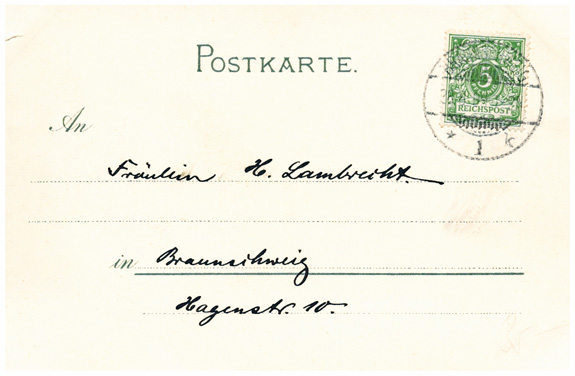 POSTKARTE.
5
PFENNIG
REICHSPOST
An
1 k
Fräulein H. Lambrecht.
in Braunschweig
Hagenstr. 10.